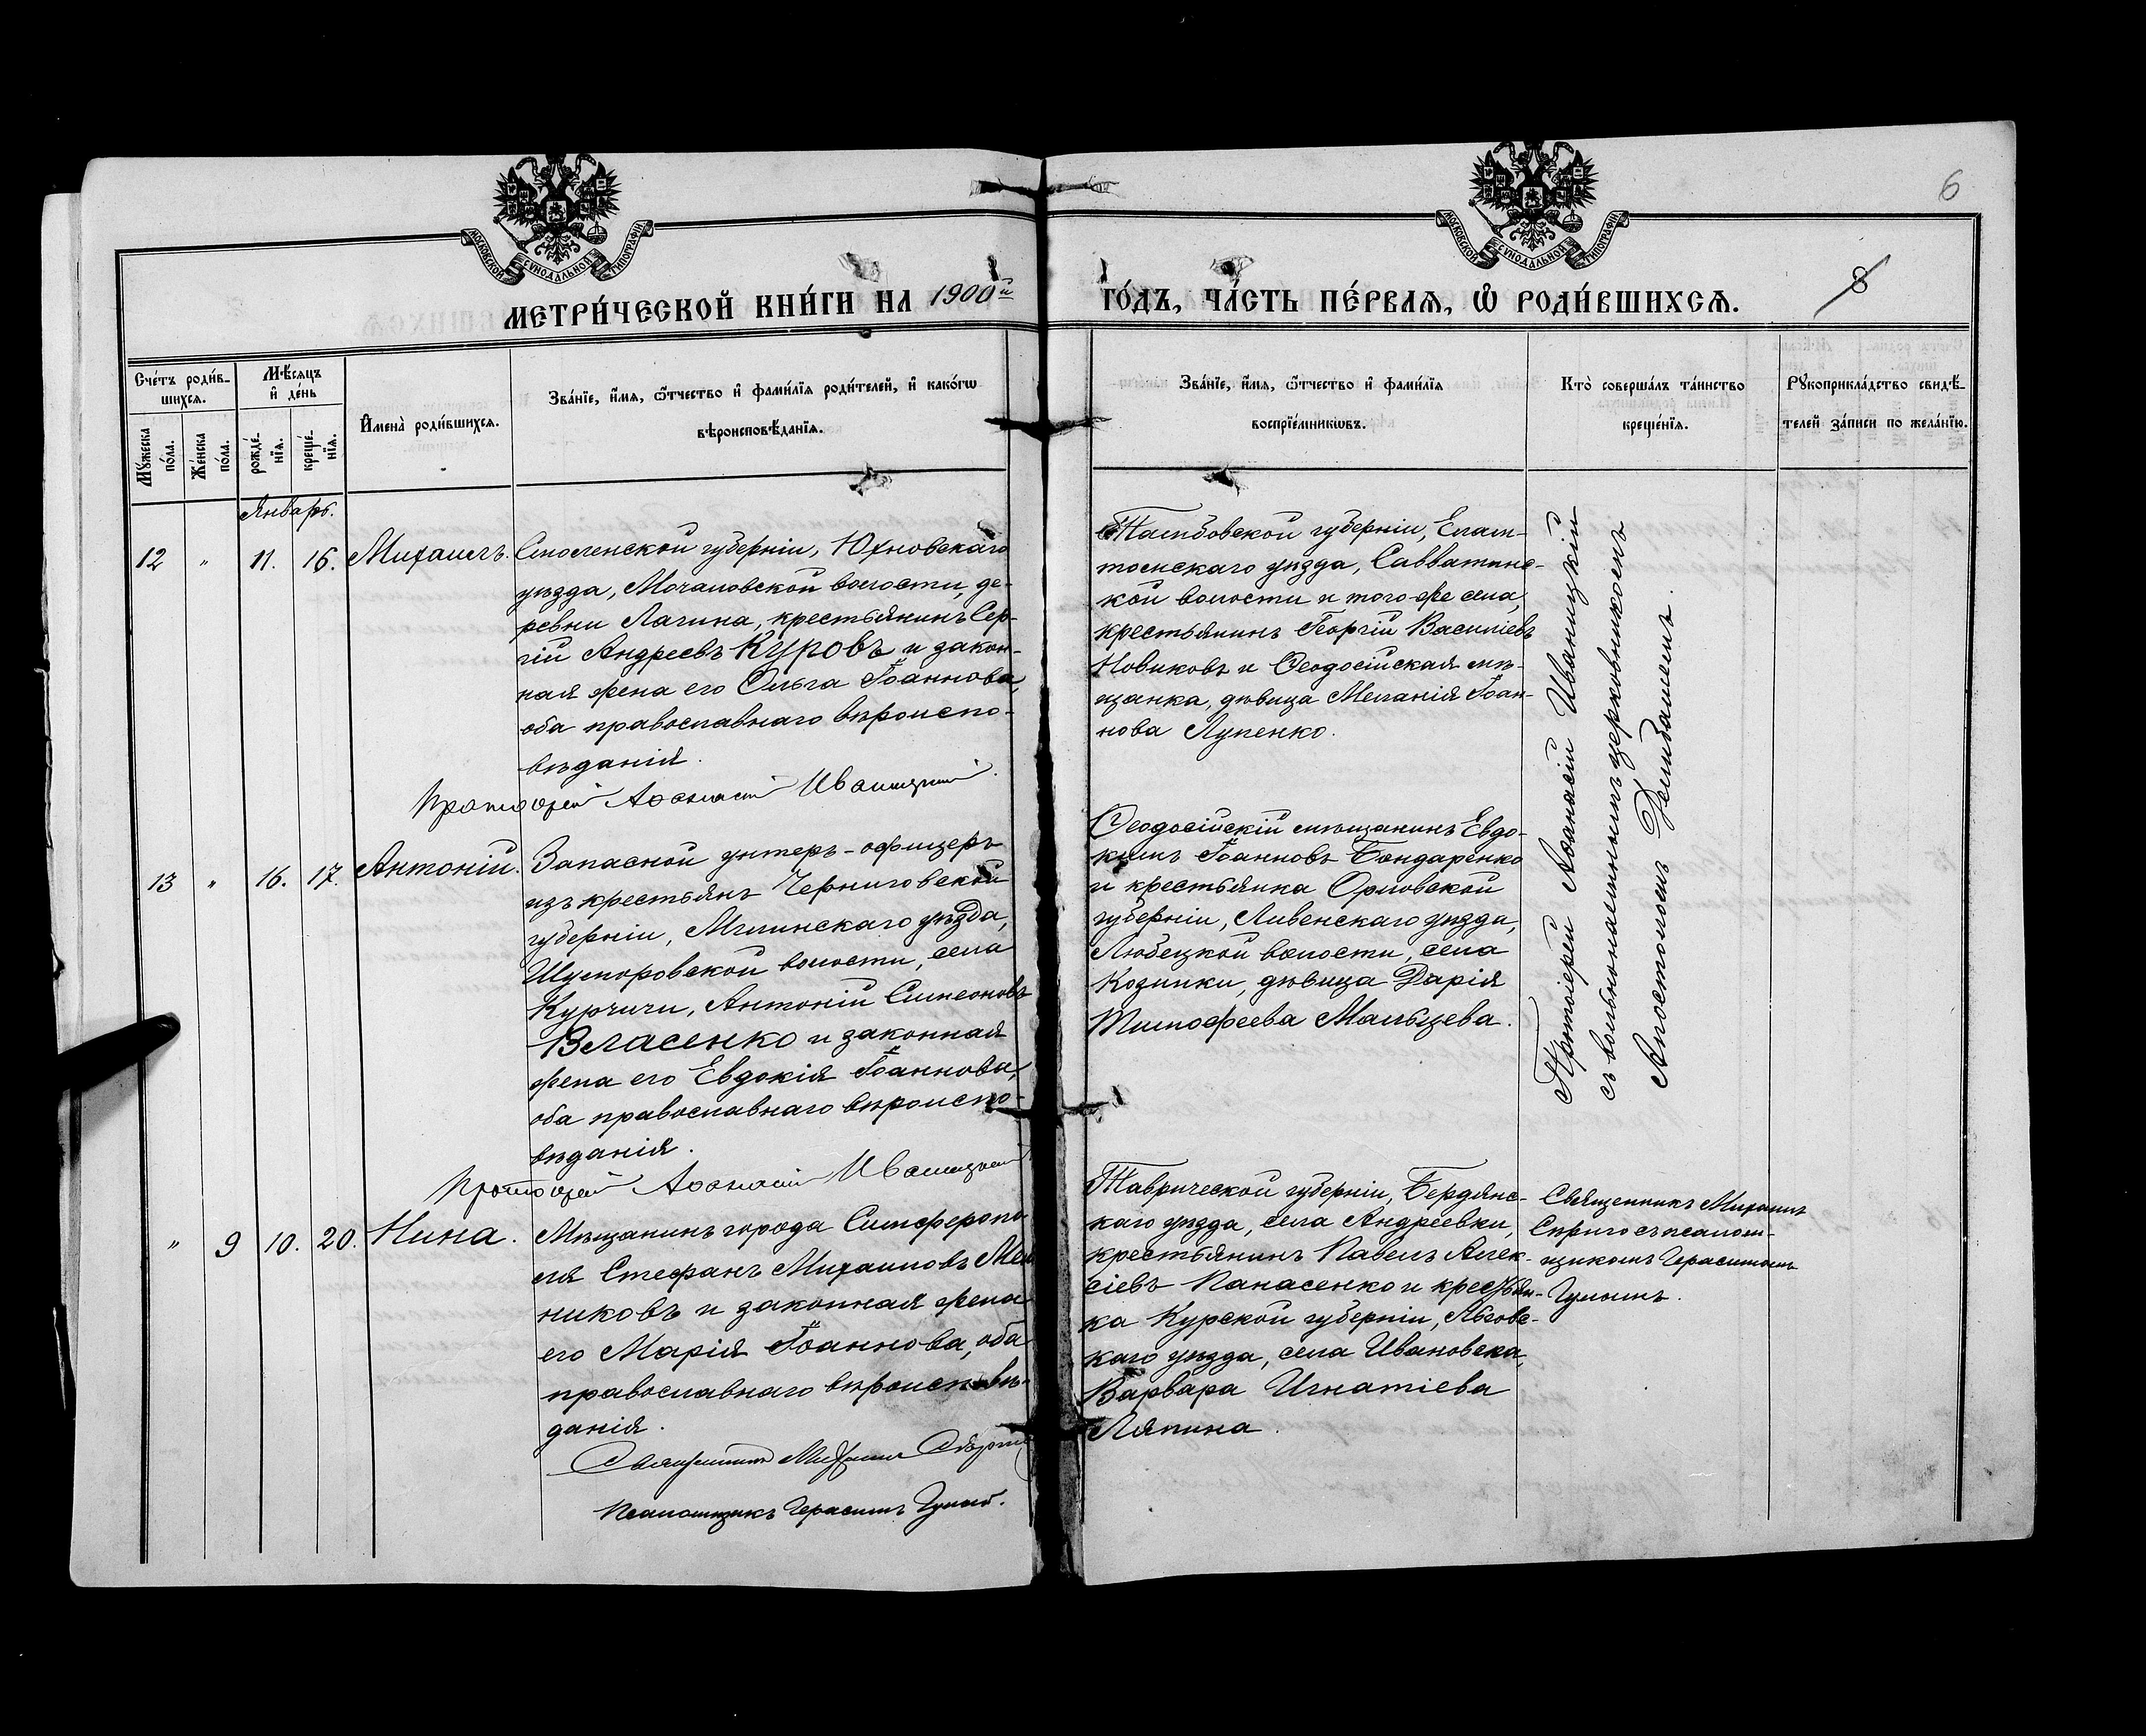 6
МОСКОВСКОЙ СѴНОДАЛЬНОЙ ТИПОГРАФІИ
МОСКОВСКОЙ СѴНОДАЛЬНОЙ ТИПОГРАФІИ
МЕТРИ́ЧЕСКОЙ КНИ́ГИ НА 1900й
ГО́ДЪ, ЧА́СТЬ ПЕ́РВАѦ, Ѡ҆ РОДИ́ВШИХСѦ.
8
Сче́тъ роди́в-
шихсѧ.
Мꙋ́жеска по́ла.
Же́нска по́ла.
Мѣ́сѧцъ
и҆ де́нь
рожде́-
нїѧ.
креще́-
нїѧ.
И҆мена̀ роди́вшихсѧ.
Зва́нїе, и҆́мѧ, ѻ҆́тчество и҆ фами́лїѧ роди́телей, и҆ како́гѡ
вѣроисповѣ́данїѧ.
Зва́нїе, и҆́мѧ, ѻ҆́тчество и҆ фами́лїѧ
воспрїе́мникѡвъ.
Кто̀ соверша́лъ та́инство
креще́нїѧ.
Рꙋкоприкла́дство свидѣ́-
телей за́писи по жела́нїю.
Январь.
12 " 11. 16. Михаилъ.
Смоленской губерніи, Юхновскаго
уѣзда, Мочаловской волости, де-
ревни Лагина, крестьянинъ Сер-
гій Андреевъ Куровъ и закон-
ная жена его Ольга Іоаннова,
оба православнаго вѣроиспо-
вѣданія.
Протоіерей Аѳанасій Иваницкій.
Тамбовской губерніи, Елать-
томскаго уѣзда, Савватинс-
кой волости и того-же села,
крестьянинъ Георгій Василіевъ
Новиковъ и Ѳеодосійская мѣ-
щанка, дѣвица Меланія Іоан-
нова Лупенко.
Протоіерей Аѳанасій Иваницкій
съ вольнонаемнымъ церковникомъ
Апостоломъ
13 " 16. 17. Антоній.
Запасной унтеръ-офицеръ
изъ крестьянъ Черниговской
губерніи, Мглинскаго уѣзда,
Шуморовской волости, села
Курчичи, Антоній Симеоновъ
Власенко и законная
жена его Евдокія Іоаннова,
оба православнаго вѣроиспо-
вѣданія.
Протоіерей Аѳанасій Иваницкій
Ѳеодосійскій мѣщанинъ Евдо-
кимъ Іоанновъ Бондаренко
и крестьянка Орловской
губерніи, Ливенскаго уѣзда,
Любецкой волости, села
Козинки, дѣвица Дарія
Тимофеева Мальцева.
" 9 10. 20. Нина.
Мѣщанинъ города Симферопо-
ля Стефанъ Михаиловъ Мель
никовъ и законная жена
его Марія Іоаннова, оба
православнаго вѣроисповѣ-
данія.
Священникъ Михаилъ
Псаломщикъ Герасимъ
Таврической губерніи, Бердянс-
каго уѣзда, села Андреевки,
крестьянинъ Павелъ Алек-
сіевъ Панасенко и крестьян-
ка Курской губерніи, Льговс-
каго уѣзда, села Ивановска,
Варвара Игнатіева
Ляпина.
Священникъ Михаилъ
съ псалом-
щикомъ Герасимомъ